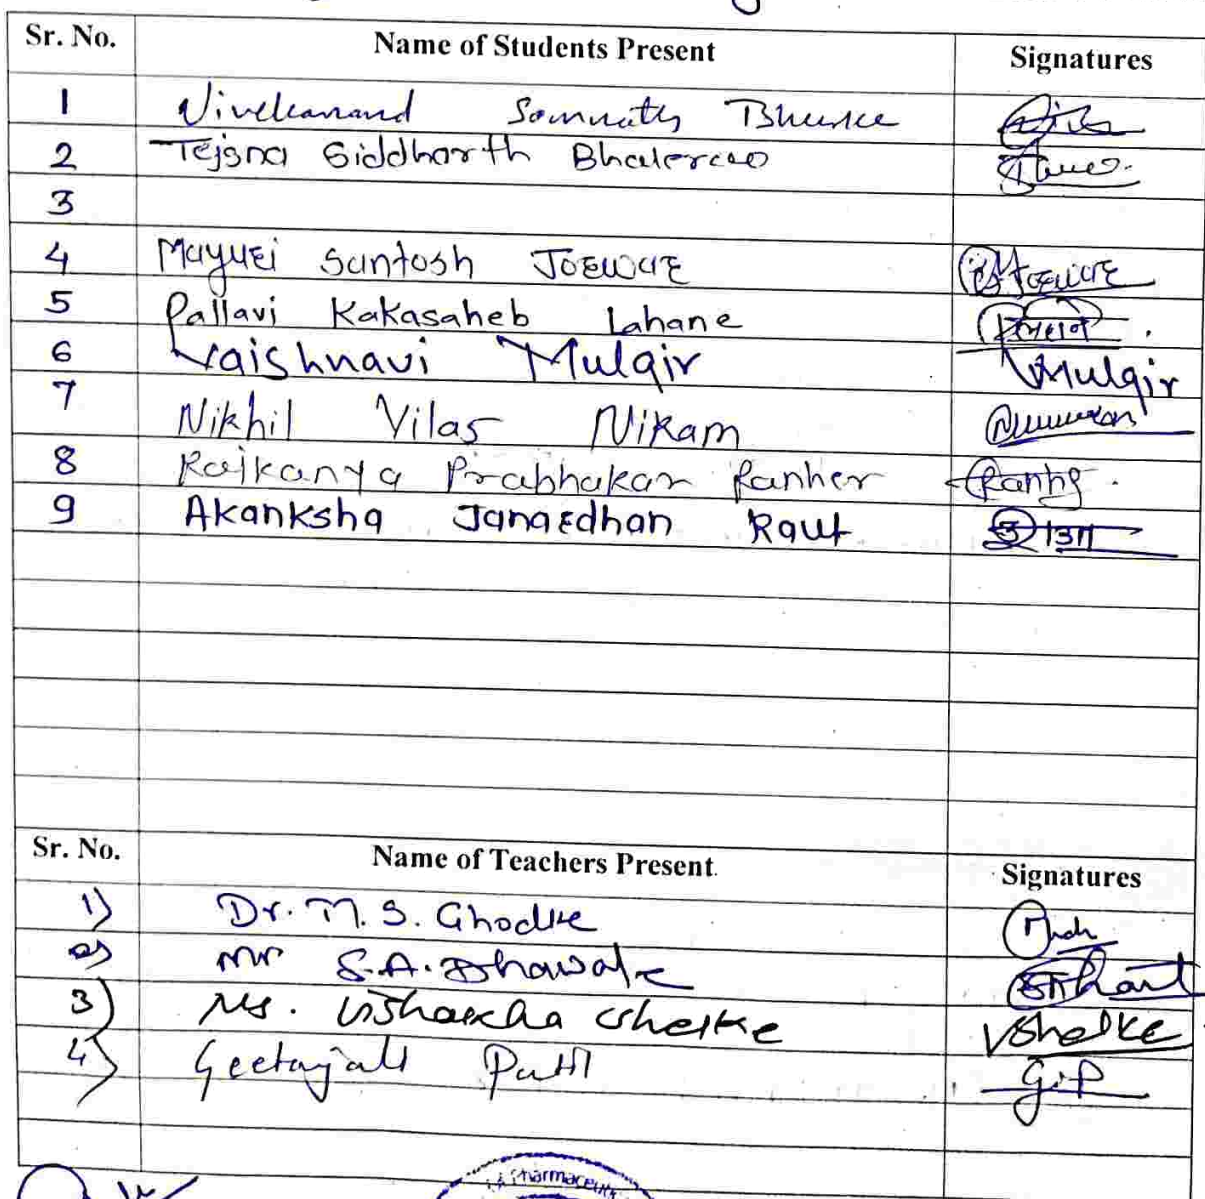 Sr. No. Name of Students Present Signatures
1 Vivekanand Somnath Bhuske
2 Tejsna Siddharth Bhalerao
3
4 Mayuri Santosh Jorware Jorware
5 Pallavi Kakasaheb Lahane
6 Vaishnavi Mulgir VMulgir
7 Nikhil Vilas Nikam
8 Rajkanya Prabhakar Ranher
9 Akanksha Janardhan Raut
Sr. No. Name of Teachers Present Signatures
1) Dr. M. S. Ghodke
2) Mr S.A. Dhawale
3) Ms. Vishakha Shelke VShelke
4) Geetajali Patil G.P